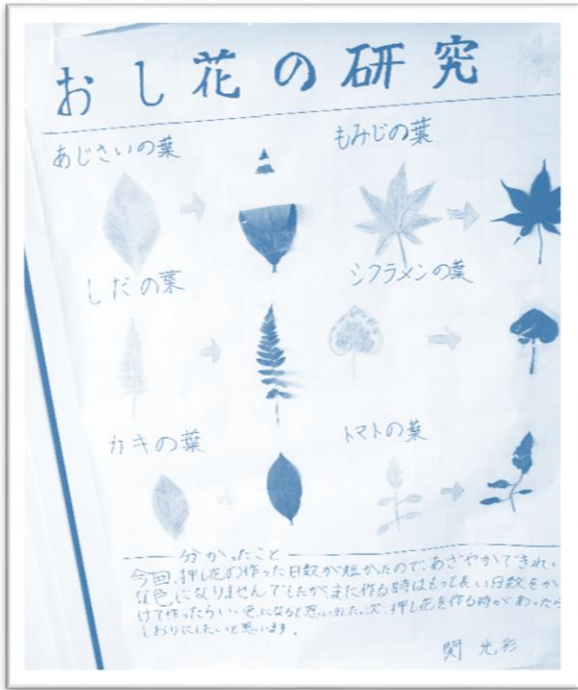 おし花の研究
あじさいの葉
もみじの葉
しだの葉
シクラメンの葉
カキの葉
トマトの葉
分かったこと
今回、押し花の作った日数が短かたので、あざやかできれい
な色になりませんでしたが、また作る時はもっと長い日数をか
けて作ったらいい色になると思いました。次、押し花を作る時があったら
しおりにしたいと思います。
関 光彩